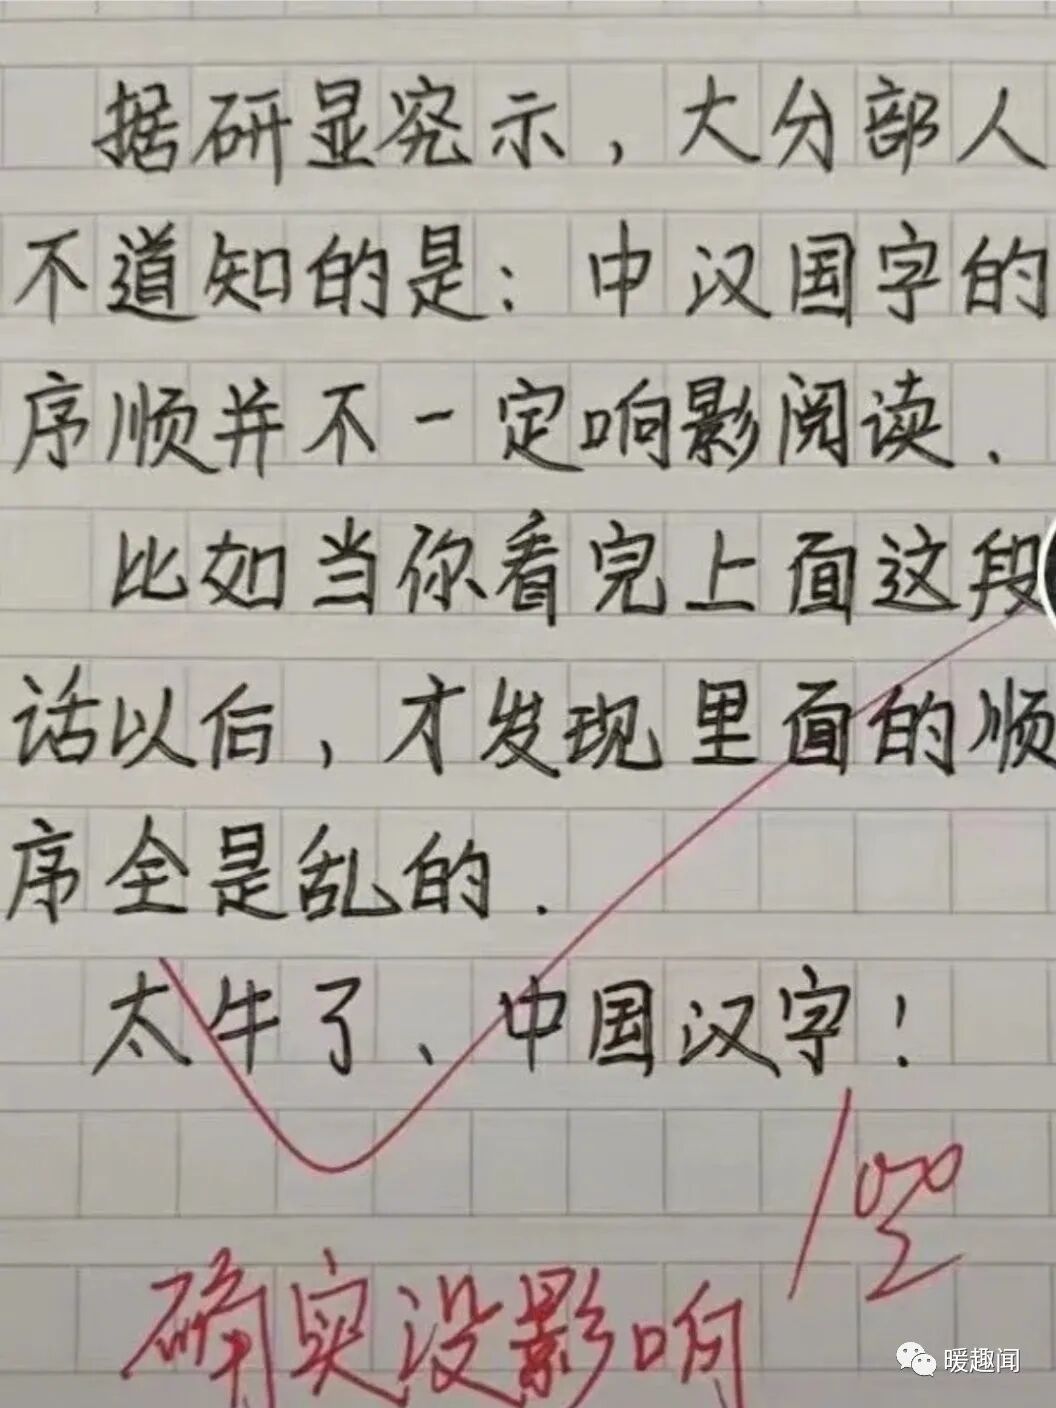 据研显究示，大分部人
不道知的是：中汉国字的
序顺并不一定响影阅读．
比如当你看完上面这段
话以后，才发现里面的顺
序全是乱的．
太牛了、中国汉字！
100
确实没影响
暖趣闻